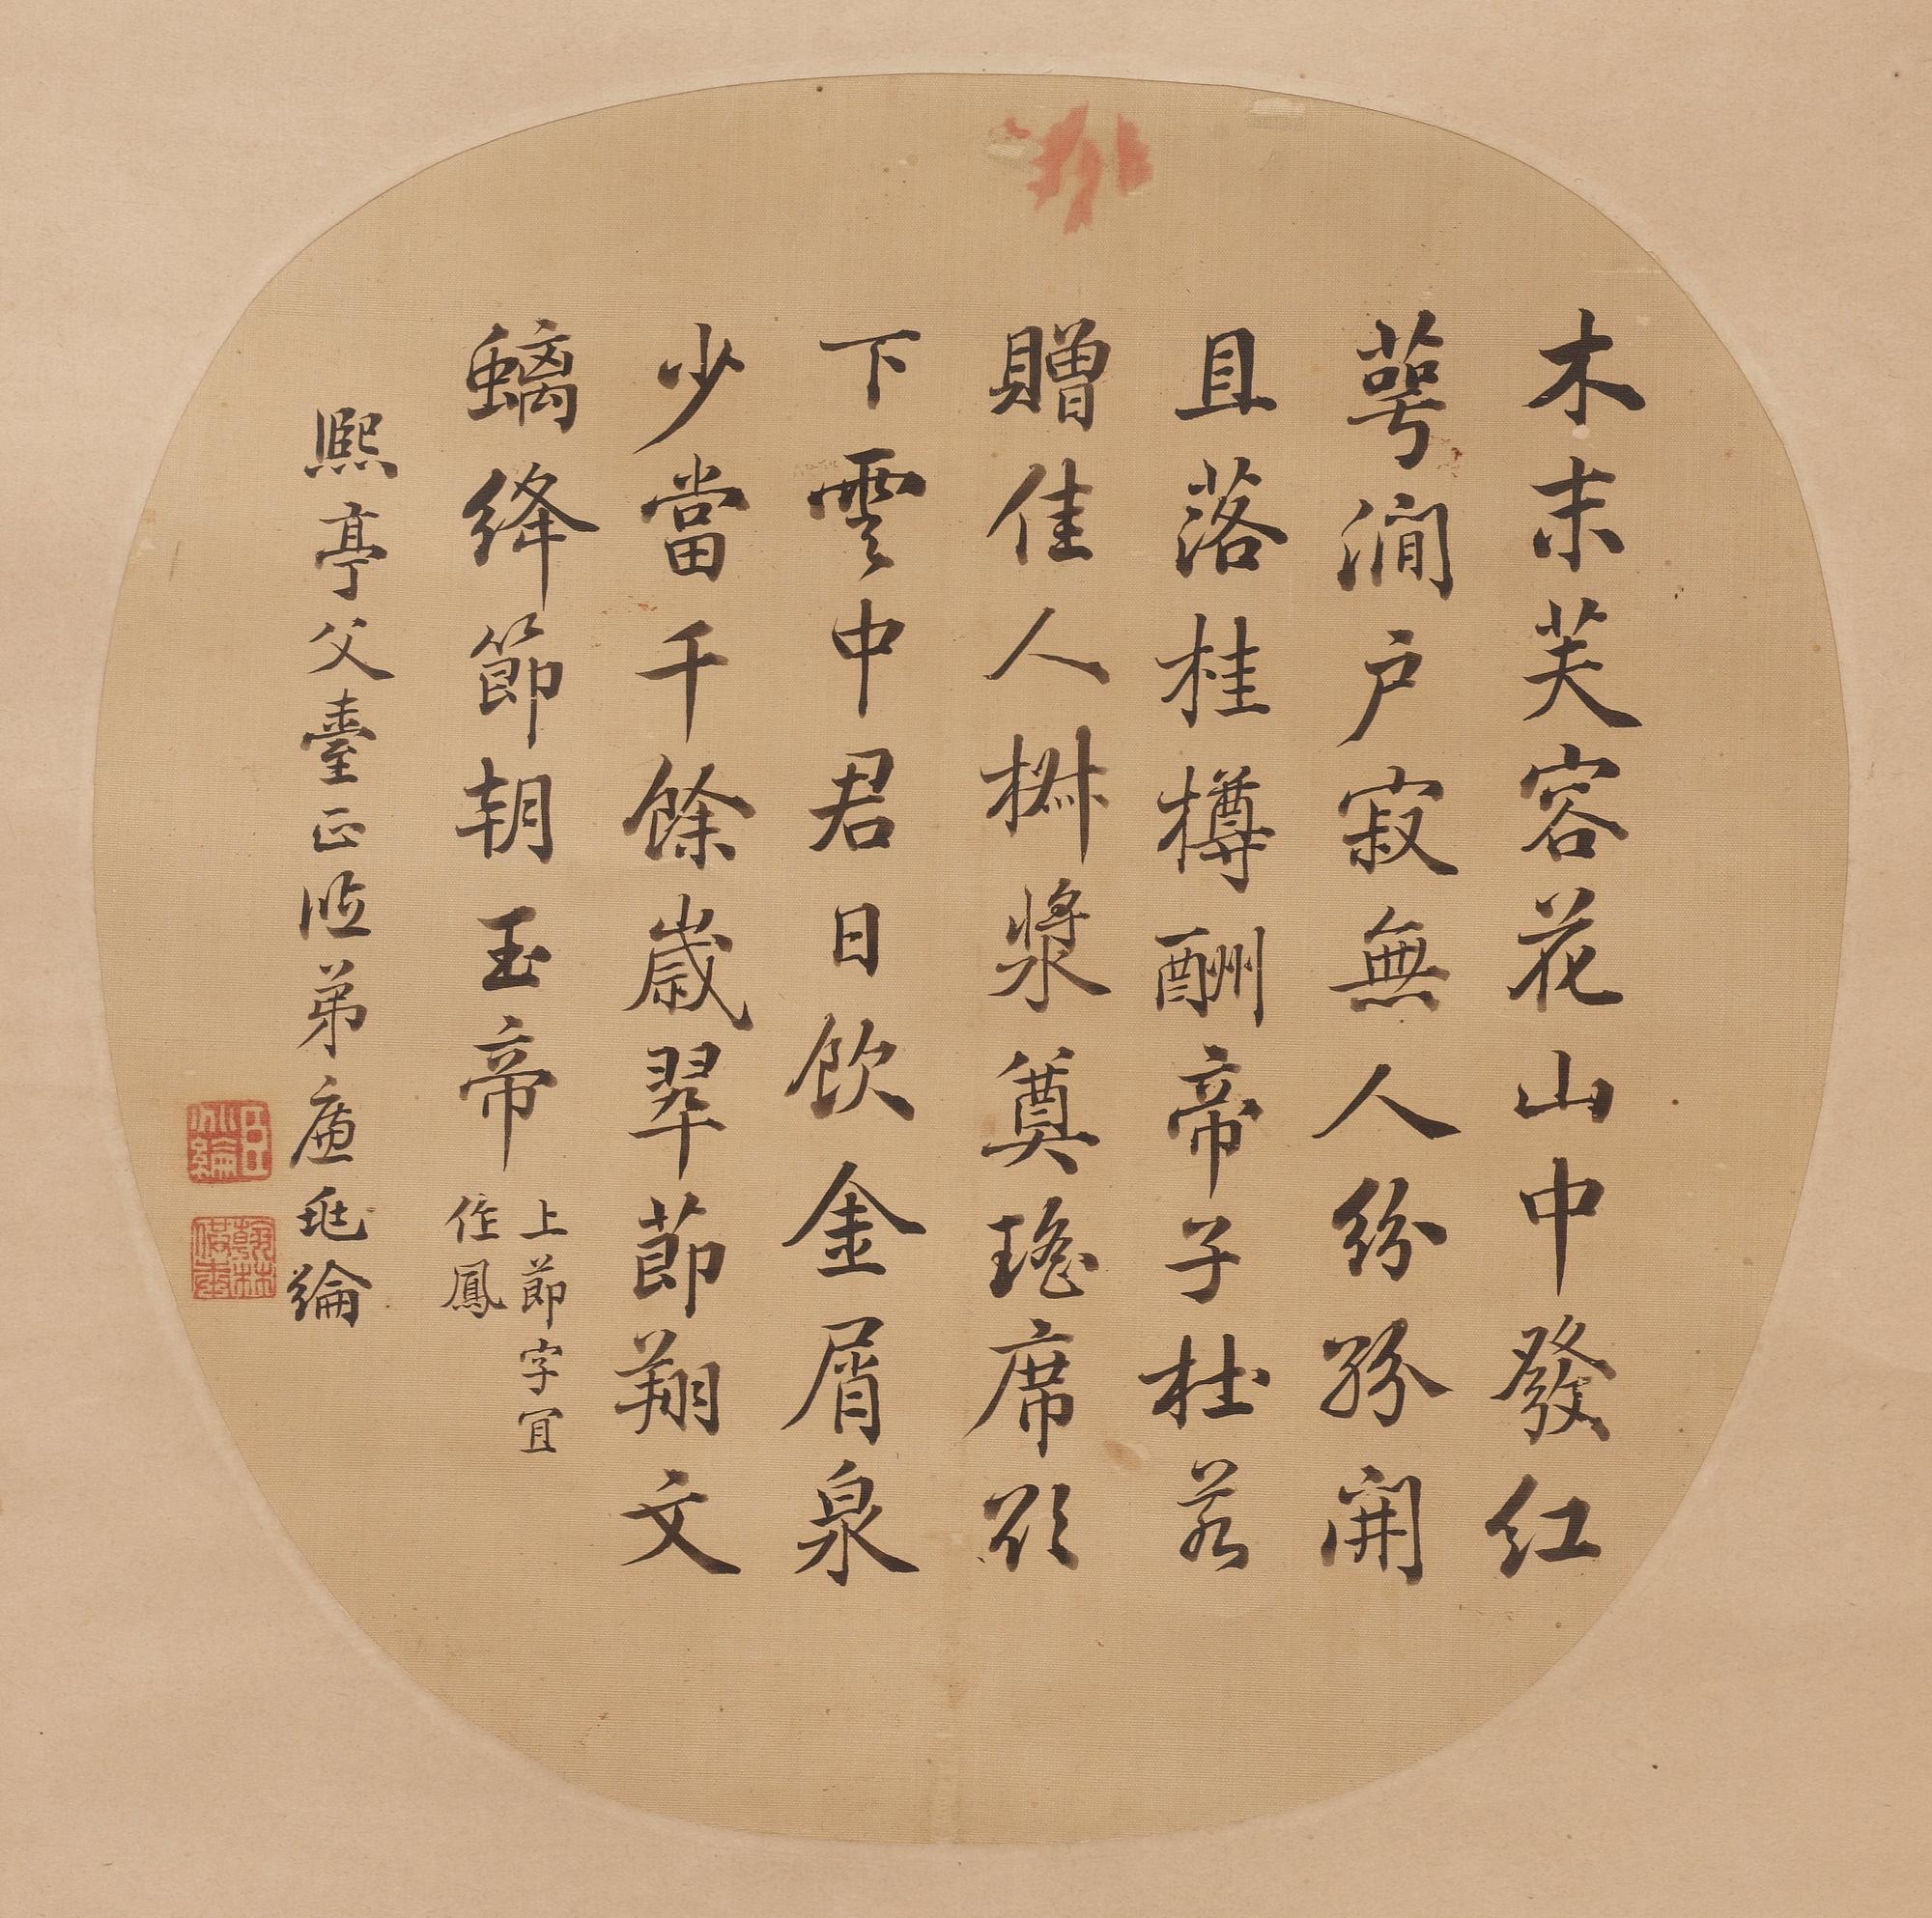 木末芙容花山中發紅
萼澗户寂無人紛紛開
且落桂樽酬帝子杜若
贈佳人椒漿奠瑤席欲
下雲中君日飲金屑泉
少當千餘歲翠節翔文
螭絳節朝玉帝
上節字宜
作鳳
熙亭父臺正治弟廉兆綸
臣兆綸